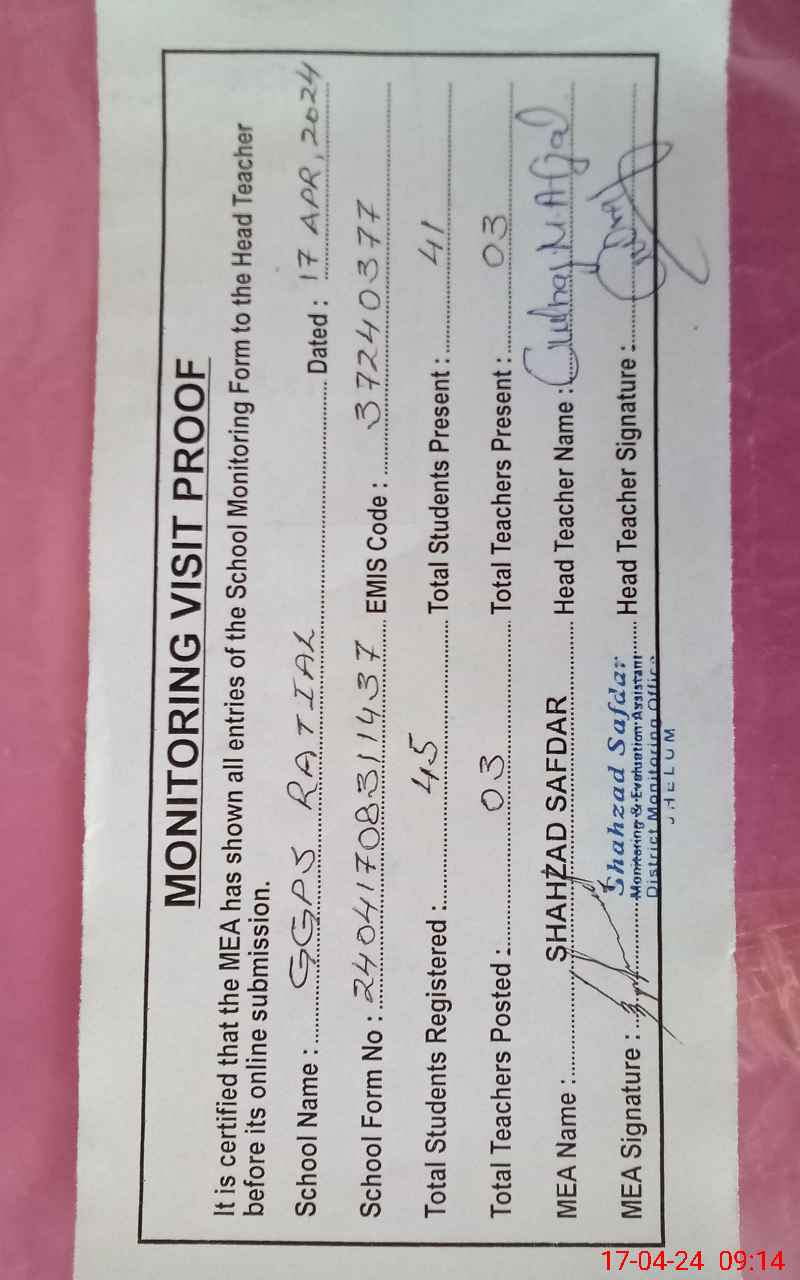 MONITORING VISIT PROOF
It is certified that the MEA has shown all entries of the School Monitoring Form to the Head Teacher
before its online submission.
School Name : GGPS RATIAL Dated : 17 APR, 2024
School Form No : 24041708311437 EMIS Code : 37240377
Total Students Registered : 45 Total Students Present : 41
Total Teachers Posted : 03 Total Teachers Present : 03
MEA Name : SHAHZAD SAFDAR Head Teacher Name :
MEA Signature : Head Teacher Signature :
Shahzad Safdar
Monitoring & Evaluation Assistant
District Monitoring Office
JHELUM
17-04-24 09:14